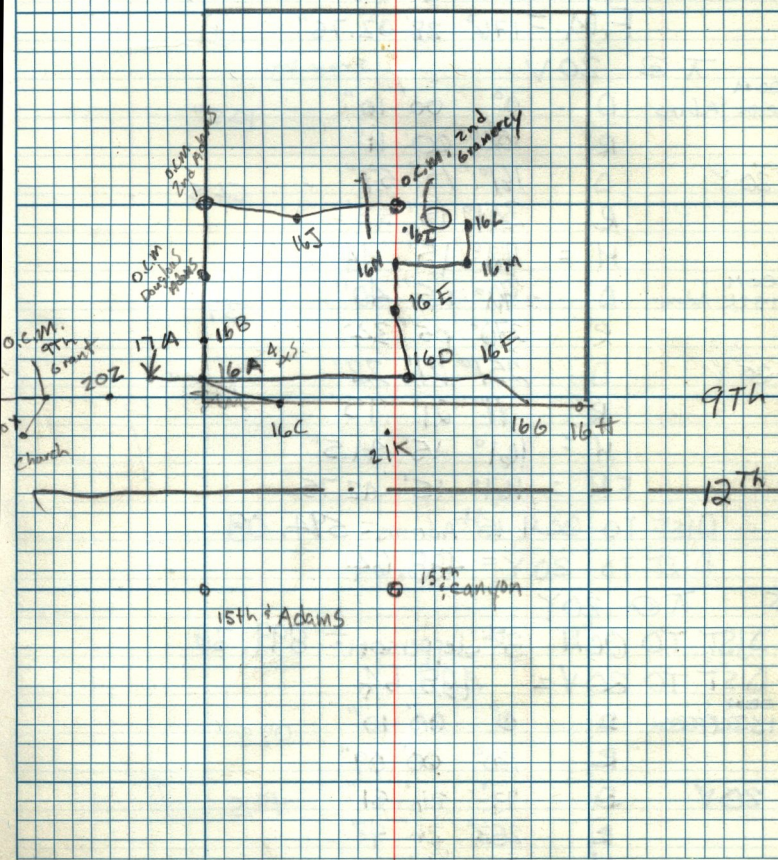 O.C.M.
2nd Adams
O.C.M. 2nd
Gramercy
16J
16I
16L
O.C.M
Douglas
Adams
16N
16M
16E
O.C.M.
9th
Grant
17A
16B
20Z
16A
16D
16F
9Th
16C
16G
16H
Church
21K
12Th
15Th
& Canyon
15th & Adams